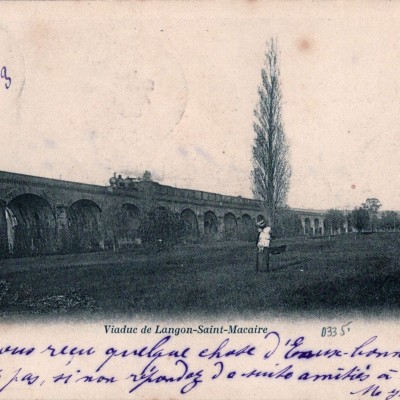 Viaduc de Langon-Saint-Macaire
0335
vous reçu quelque chose d'Eaux-bonn
pas, si non répondez de suite amitiés à